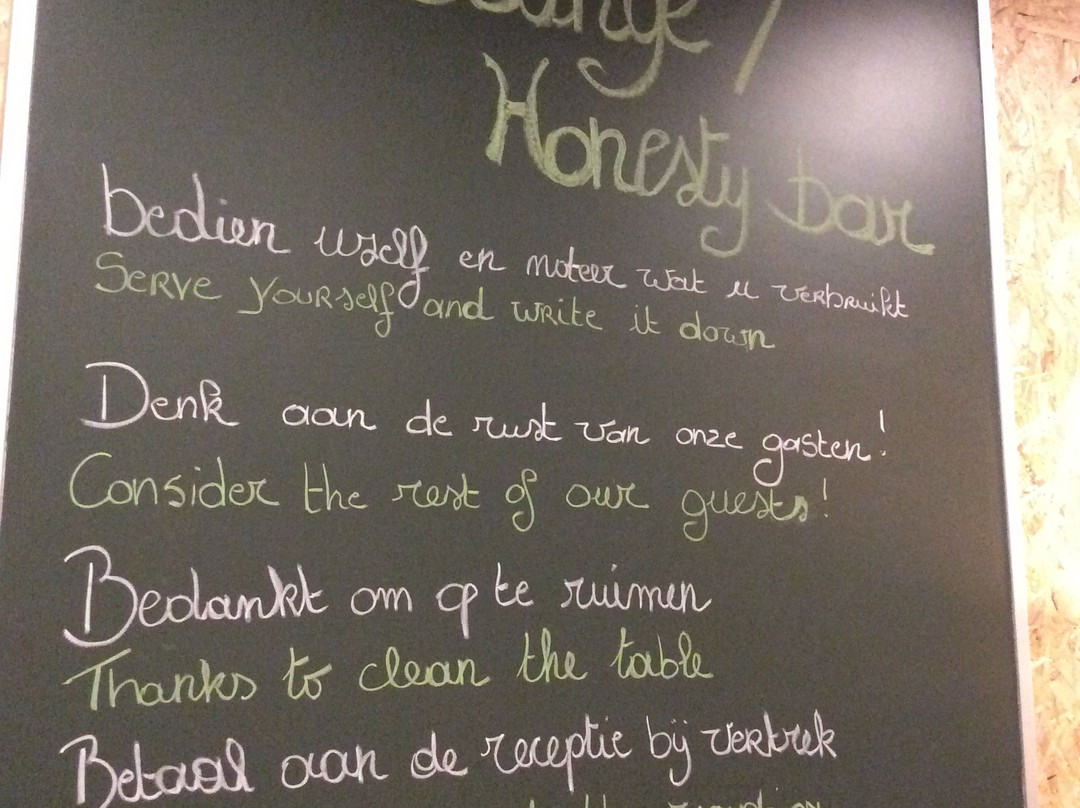 Honesty bar
bedien uzelf en noteer wat u verbruikt
Serve yourself and write it down
Denk aan de rust van onze gasten!
Consider the rest of our guests!
Bedankt om op te ruimen
Thanks to clean the table
Betaal aan de receptie bij vertrek